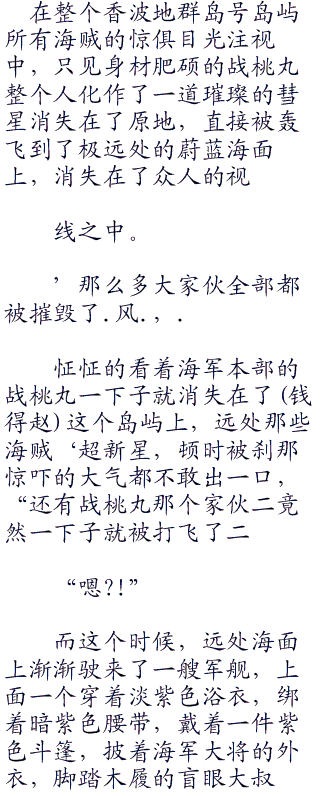 在整个香波地群岛号岛屿
所有海贼的惊俱目光注视
中，只见身材肥硕的战桃丸
整个人化作了一道璀璨的彗
星消失在了原地，直接被轰
飞到了极远处的蔚蓝海面
上，消失在了众人的视
线之中。
’那么多大家伙全部都
被摧毁了.风.，.
怔怔的看着海军本部的
战桃丸一下子就消失在了(钱
得赵)这个岛屿上，远处那些
海贼‘超新星，顿时被刹那
惊吓的大气都不敢出一口，
“还有战桃丸那个家伙二竟
然一下子就被打飞了二
“嗯?!”
而这个时候，远处海面
上渐渐驶来了一艘军舰，上
面一个穿着淡紫色浴衣，绑
着暗紫色腰带，戴着一件紫
色斗篷，披着海军大将的外
衣，脚踏木履的盲眼大叔